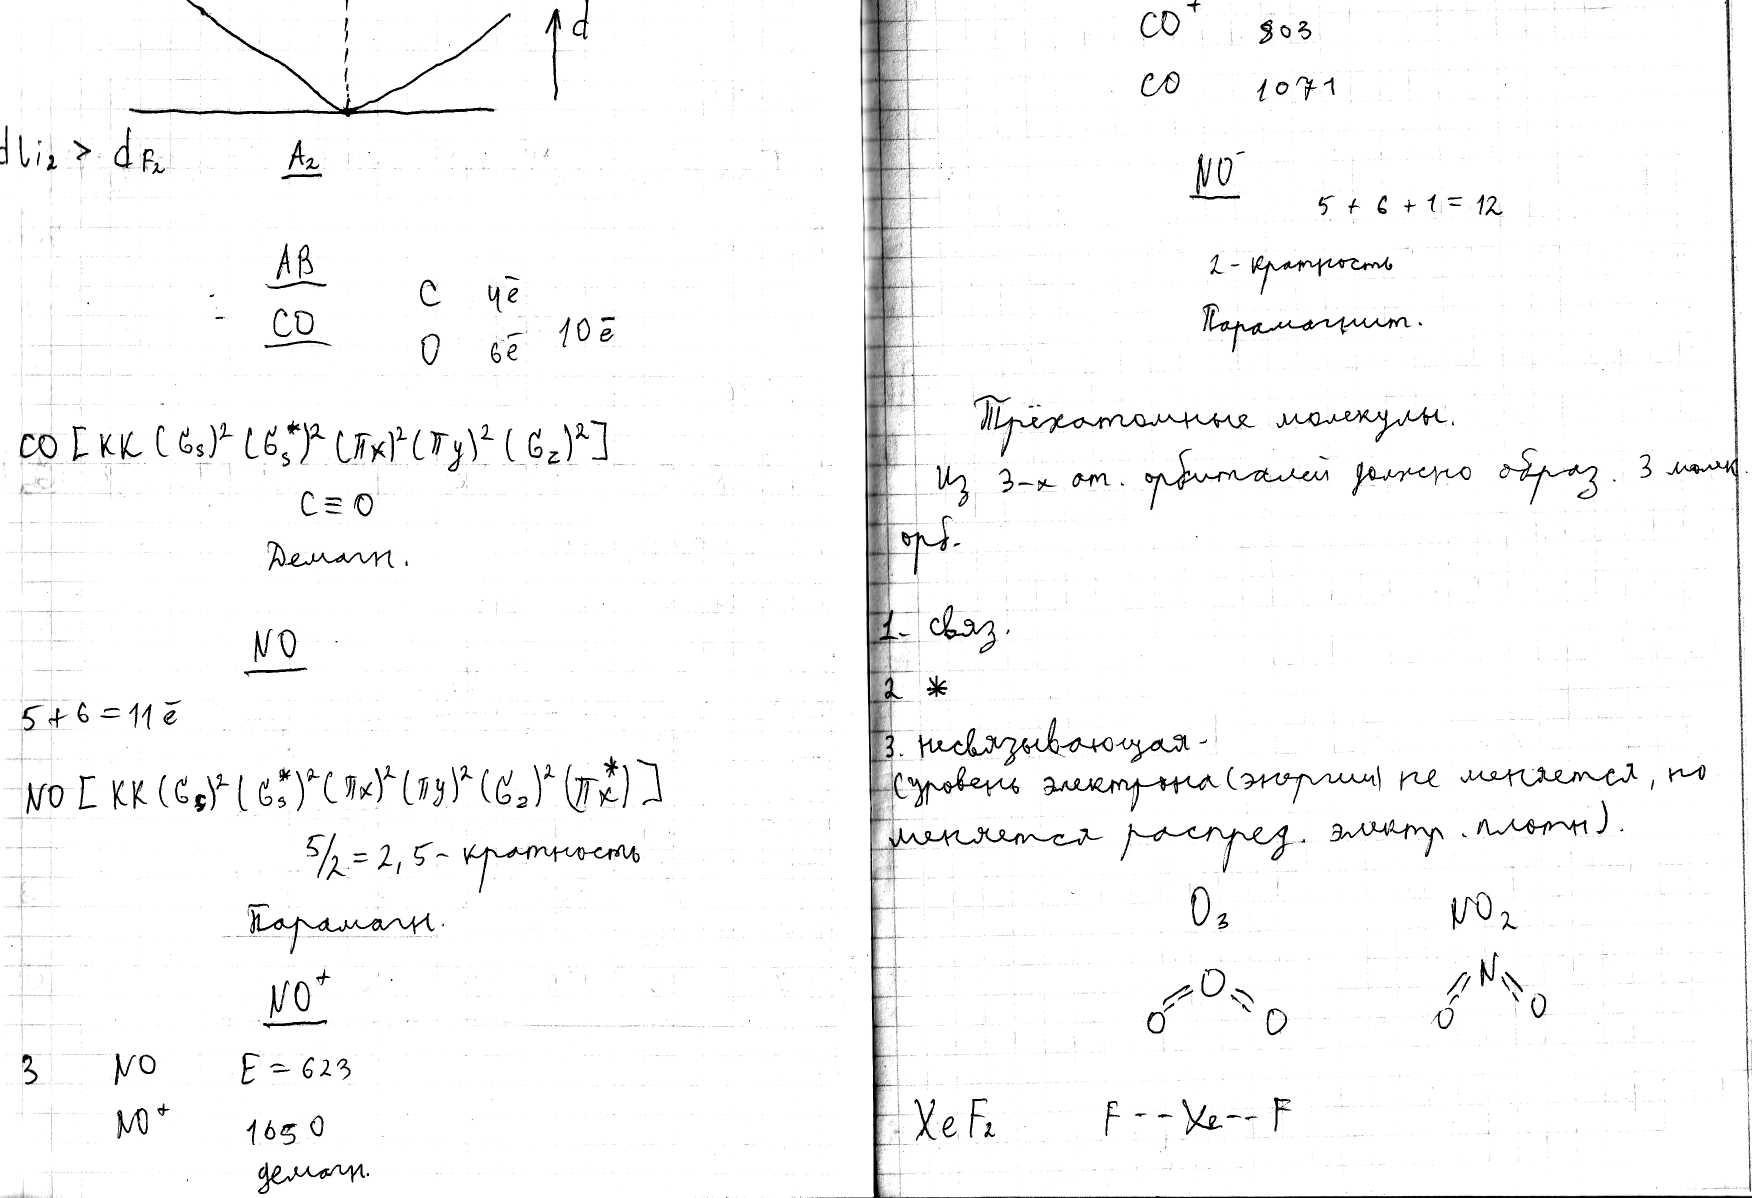 d
dLi₂ > dF₂
A₂
AB
CO
C 4ē
O 6ē 10ē
CO [KK (Gₛ)² (Gₛ*)² (πx)² (πy)² (G_z)²]
C≡O
Демагн.
NO
5+6=11ē
NO [KK (Gₛ)² (Gₛ*)² (πx)² (πy)² (G_z)² (πx*)]
5/2 = 2,5 - кратность
Парамагн.
NO⁺
3 NO E = 623
NO⁺ 1050
демагн.
CO⁺ 803
CO 1071
NO⁻
5 + 6 + 1 = 12
2 - кратность
Парамагнит.
Трёхатомные молекулы.
Из 3-х ат. орбиталей должно образ. 3 молек.
орб.
1. связ.
2 *
3. несвязывающая -
(уровень электрона (энергии) не меняется, но
меняется распред. электр. плотн).
O₃ NO₂
O N
O O O O
XeF₂ F---Xe---F